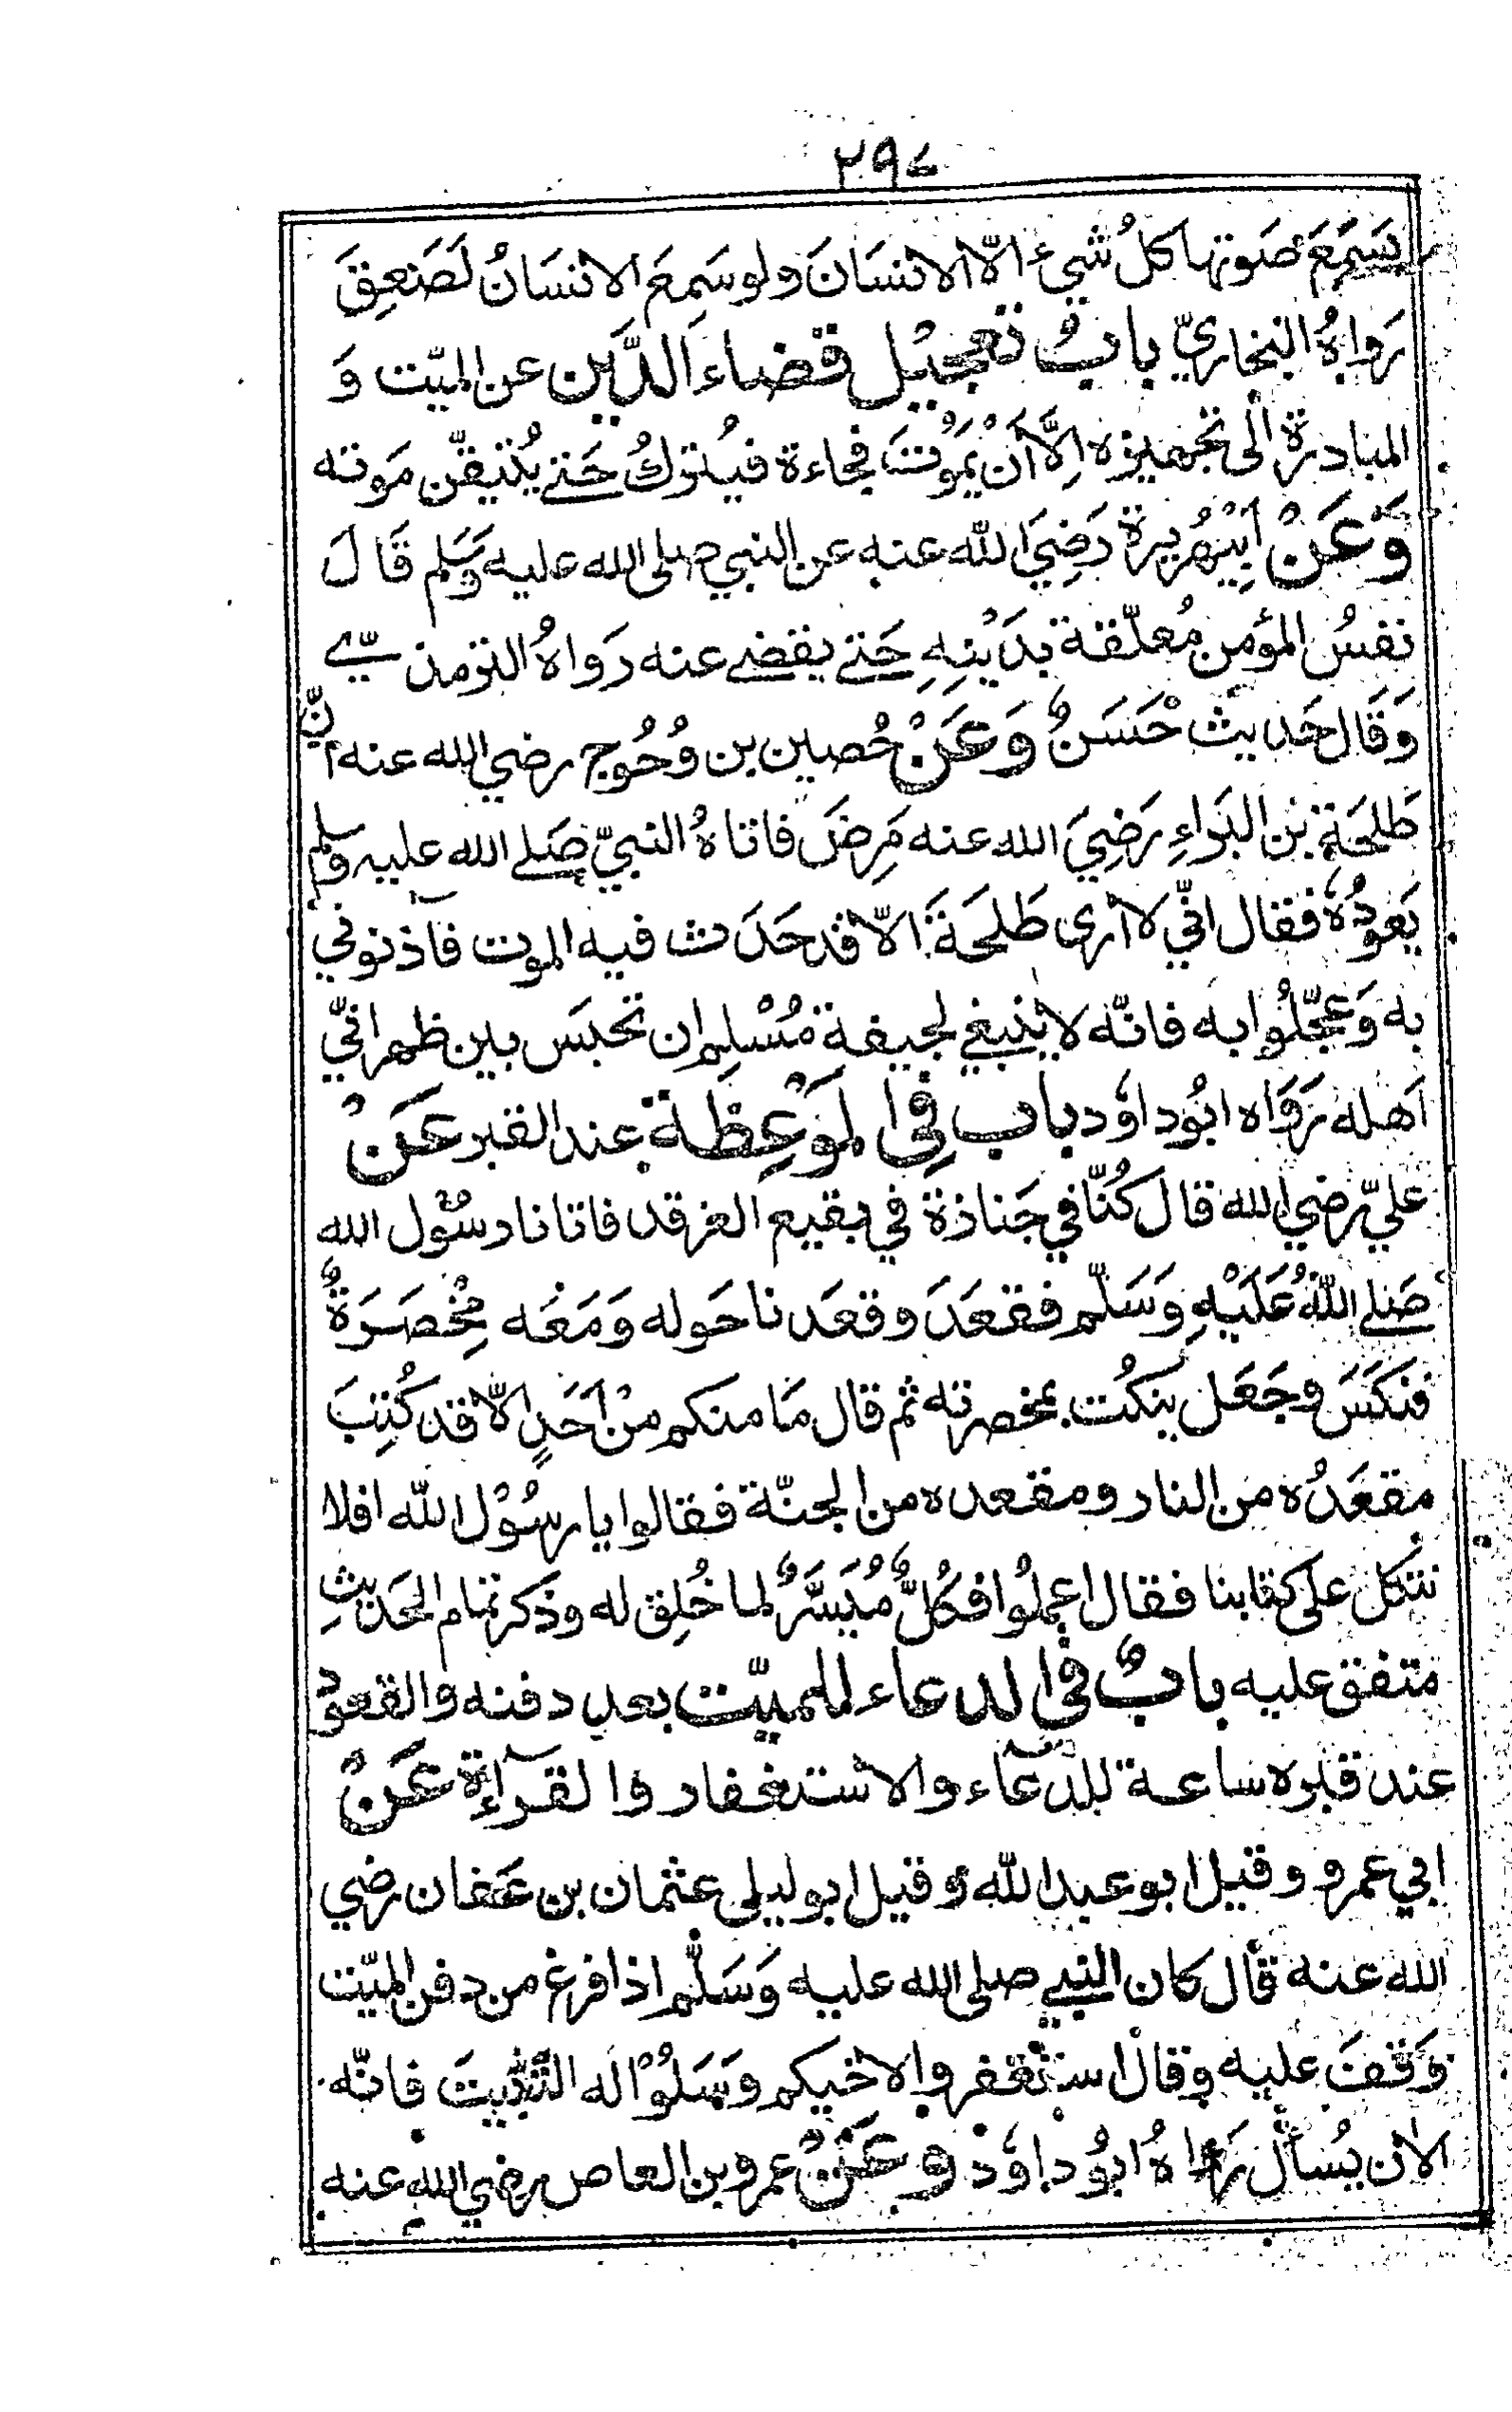 ٢٩٤
يَسْمَعُ صَوتها كلُ شيء الّا الانسَانَ ولو سَمِعَ الانسَانُ لَصَعِقَ
رَواهُ البخاريّ بابُ تعجيل قضاء الدَّين عن الميّت وَ
المبادرة الى تجهيزه اِلَّا اَنْ يَمُوْتَ فجاءة فيُتركُ حَتے يُتيقّن مَوته
وَعَنْ اَبِيْهُريرة رَضِيَ الله عنه عن النبي صلى الله عليه وَسَلم قَالَ
نفسُ المؤمن مُعلّقة بدَيْنِهِ حَتے يقضے عنه رَواهُ الترمذيّ
وَقَال حَديث حْسَنٌ وَعَنْ حُصين بن وُحُوج رضي الله عنه انّ
طَلحَة بن البَراءِ رَضِيَ الله عنه مَرِضَ فاتاهُ النبيّ صَلے الله عليه وسلم
يَعُودُهٗ فقال انّي لا أرى طَلحَةَ الّا قد حَدَث فيه الموت فآذنوني
به وَعَجّلُوا به فانّه لا ينبغي لجيفة مُسْلِم ان تحبَس بين ظهرانيّ
اَهله رَوَاه ابُو داوٗد باب فِي المَوْعِظَة عند القبر عَنْ
عليّ رضي الله قال كُنّا في جَنازة في بقيع الغرقد فاتانا رسُوْل الله
صَلے اللهُ عَلَيْهِ وَسَلّم فقعَدَ وقعَدنا حَوله وَمَعَه مِخْصَرَةٌ
فنكَسَ وجَعَل ينكُت بمخصرته ثم قال مَا منكم منْ اَحَدٍ الّا قد كُتِبَ
مقعَدُه من النار ومقعده من الجنّة فقالوا يا رسُوْل الله افلا
نتكل على كتابنا فقال اعملُوا فكُلٌّ مُيَسَّرٌ لما خُلِق له وذكر تمام الحَديثِ
متفق عليه بابٌ في الدعاء للميّت بعد دفنه والقعود
عند قبره ساعة للدعَاء والاستغفار والقرآءة عَنْ
ابي عمرو وقيل ابو عبد الله وقيل ابو ليلى عثمان بن عَفان رضي
الله عنه قال كان النبي صلى الله عليه وَسَلّم اذا فرغ من دفن الميّت
وَقفَ عليه وقال استغفروا لاخيكم وَسَلُوْا له التَّثْبِيتَ فانّه
الآن يُسأل رَوَاهُ ابُو داوٗد وعَنْ عمرو بن العاص رضي الله عنه